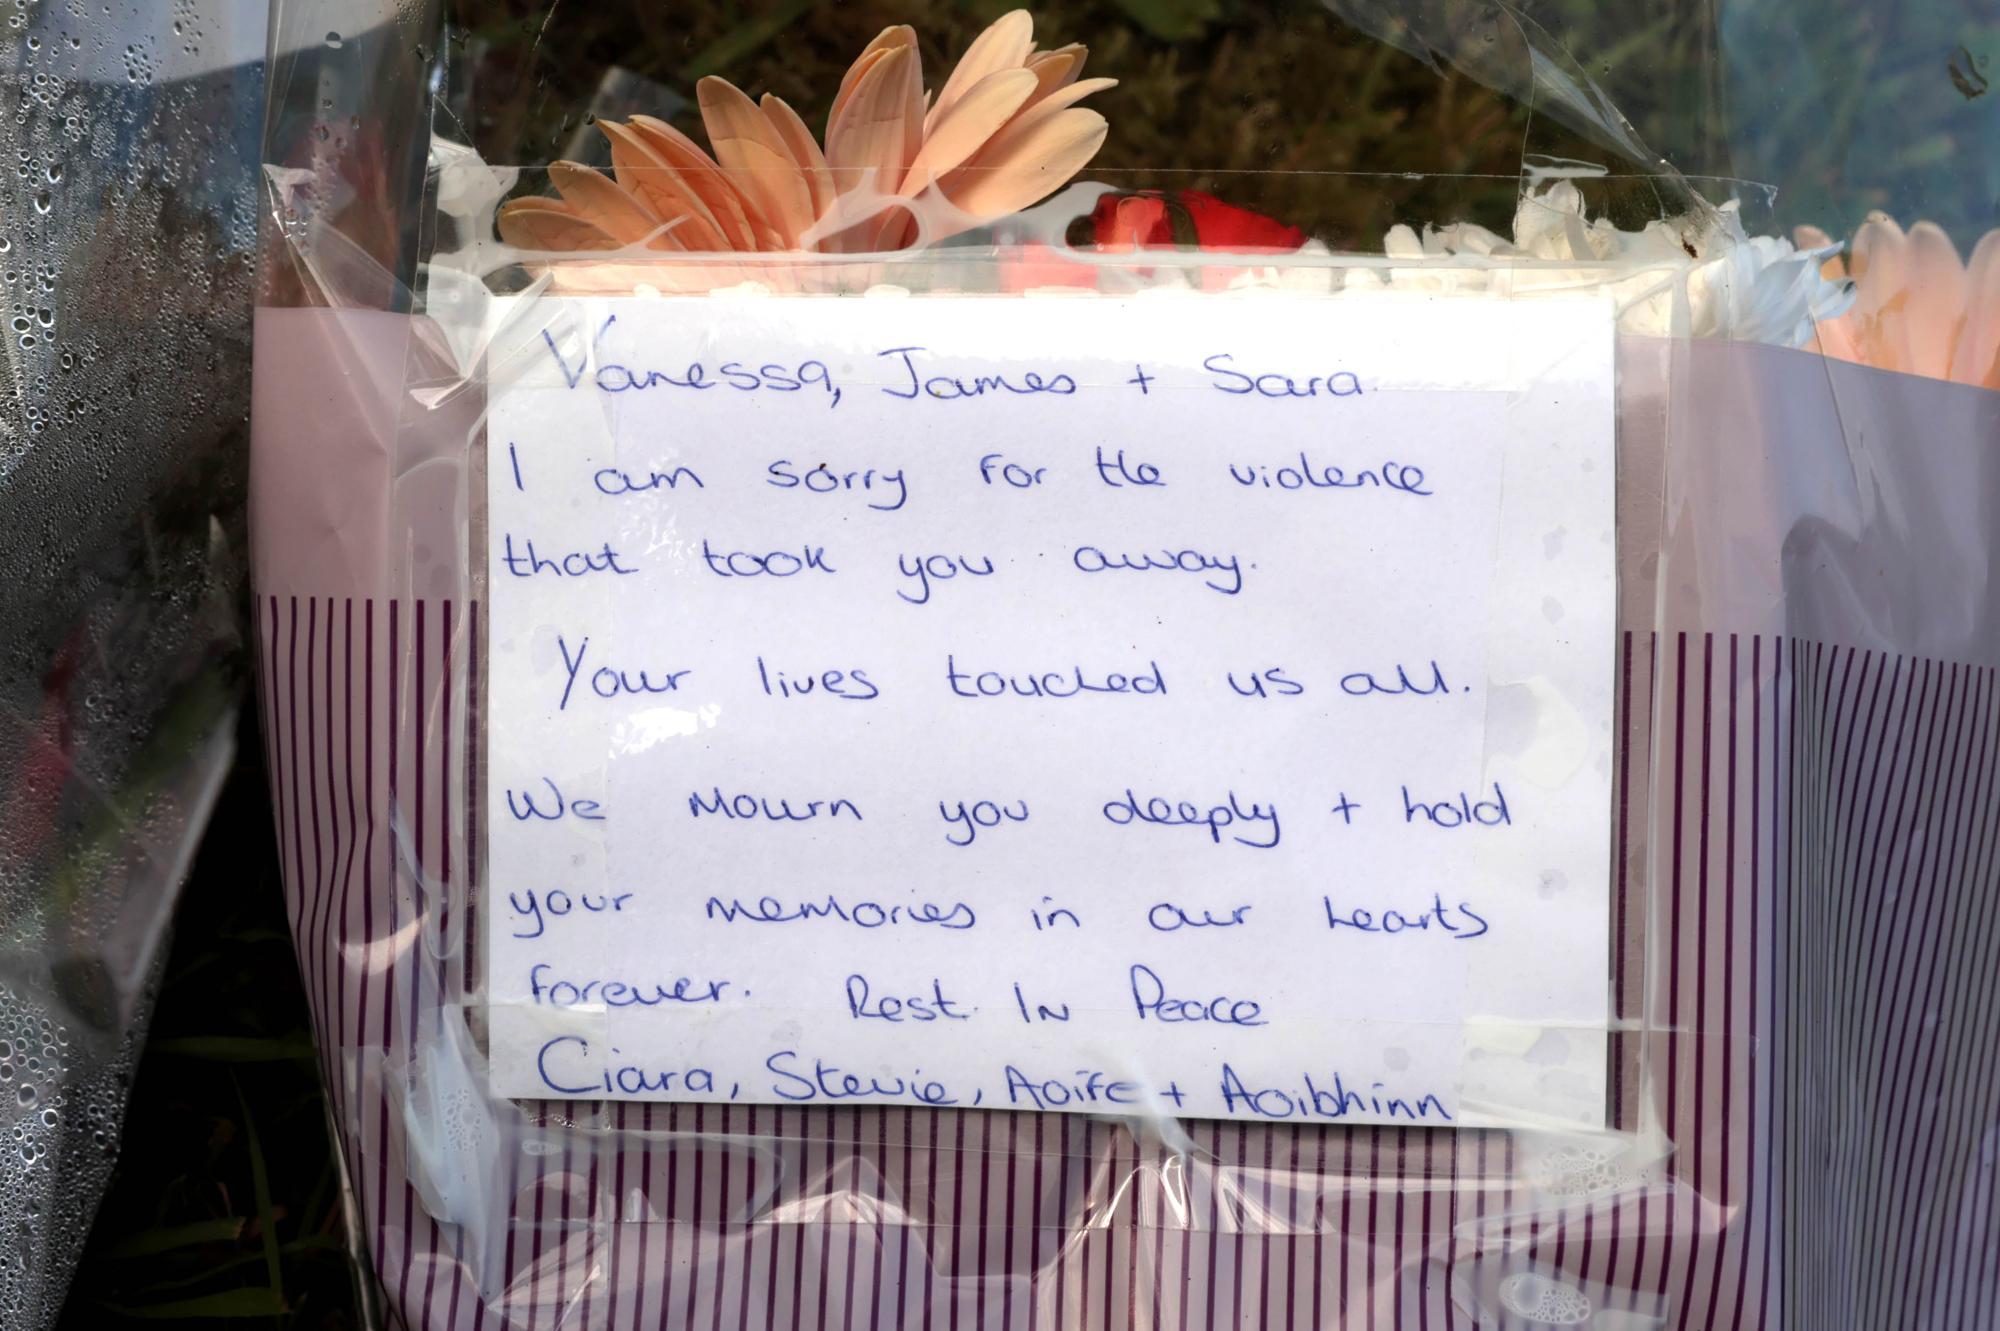 Vanessa, James + Sara.
I am sorry for the violence
that took you away.
Your lives touched us all.
We mourn you deeply + hold
your memories in our hearts
forever. Rest In Peace
Ciara, Stevie, Aoife + Aoibhinn